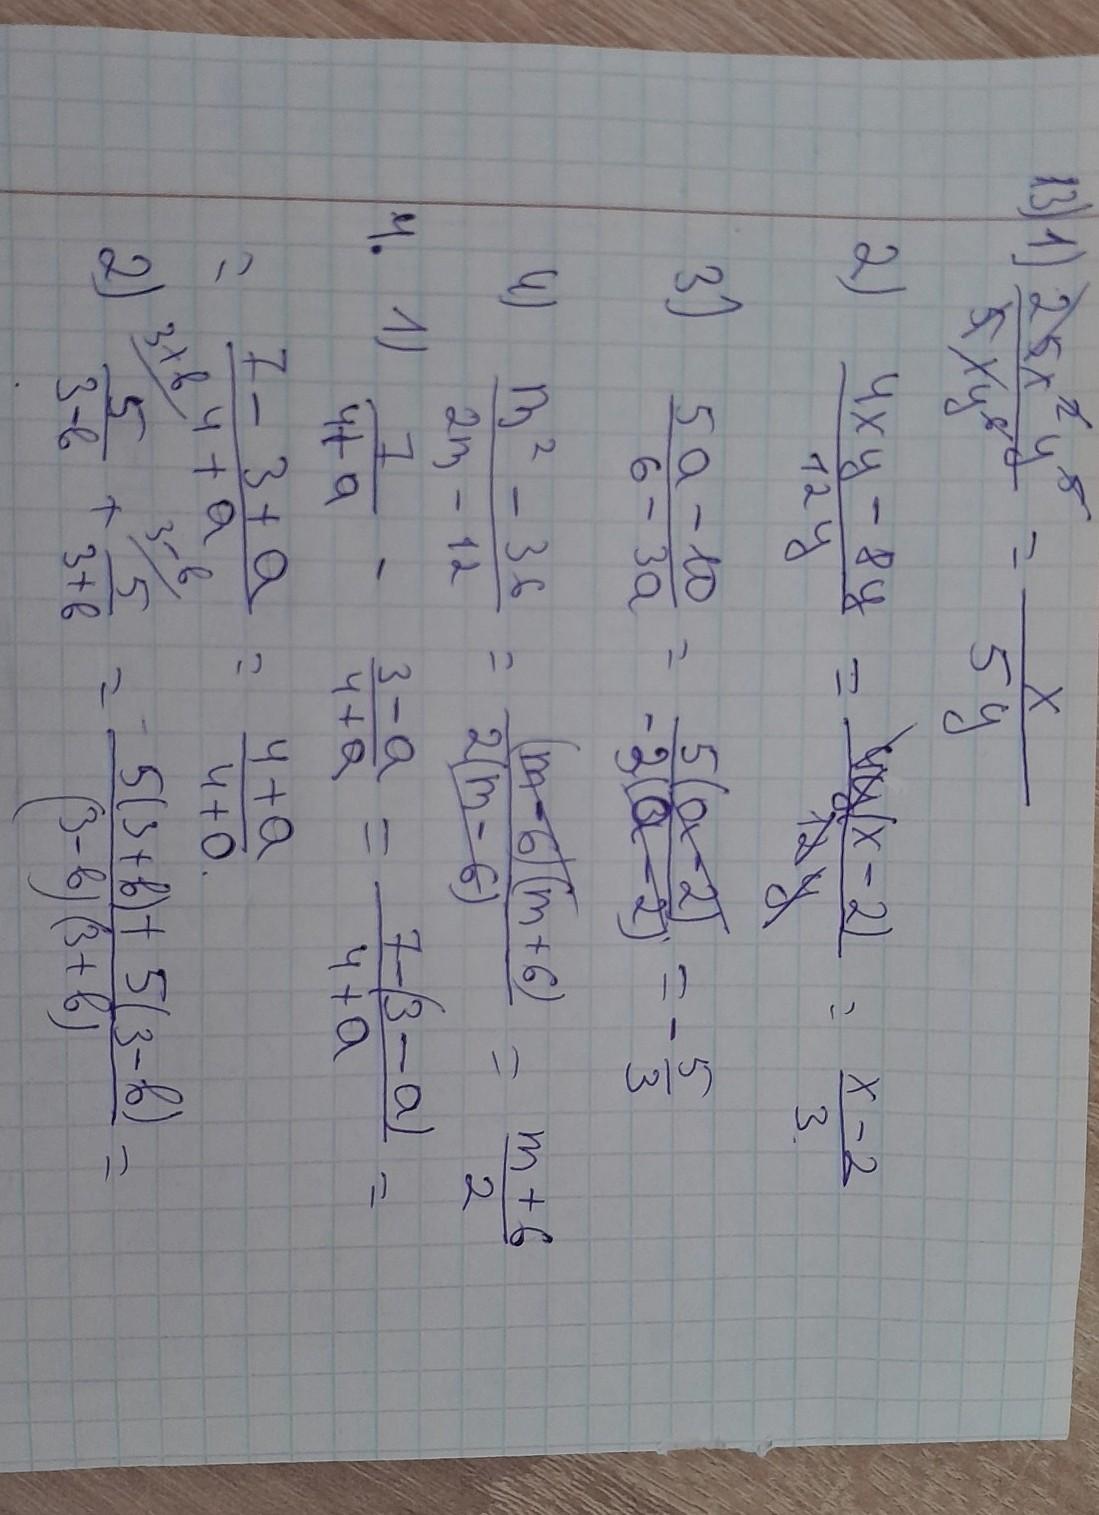 13) 1) 25x²y⁵ / 5xy⁶ = x / 5y
2) 4xy - 8y / 12y = 4y(x-2) / 12y = x-2 / 3.
3) 5a - 10 / 6 - 3a = 5(a-2) / -3(a-2) = - 5 / 3
4) m² - 36 / 2m - 12 = (m-6)(m+6) / 2(m-6) = m+6 / 2
4. 1) 7 / 4+a - 3-a / 4+a = 7-(3-a) / 4+a =
= 7 - 3+a / 4+a = 4+a / 4+a.
2) 3+b/ 5 / 3-b + 3-b/ 5 / 3+b = 5(3+b)+5(3-b) / (3-b)(3+b) =